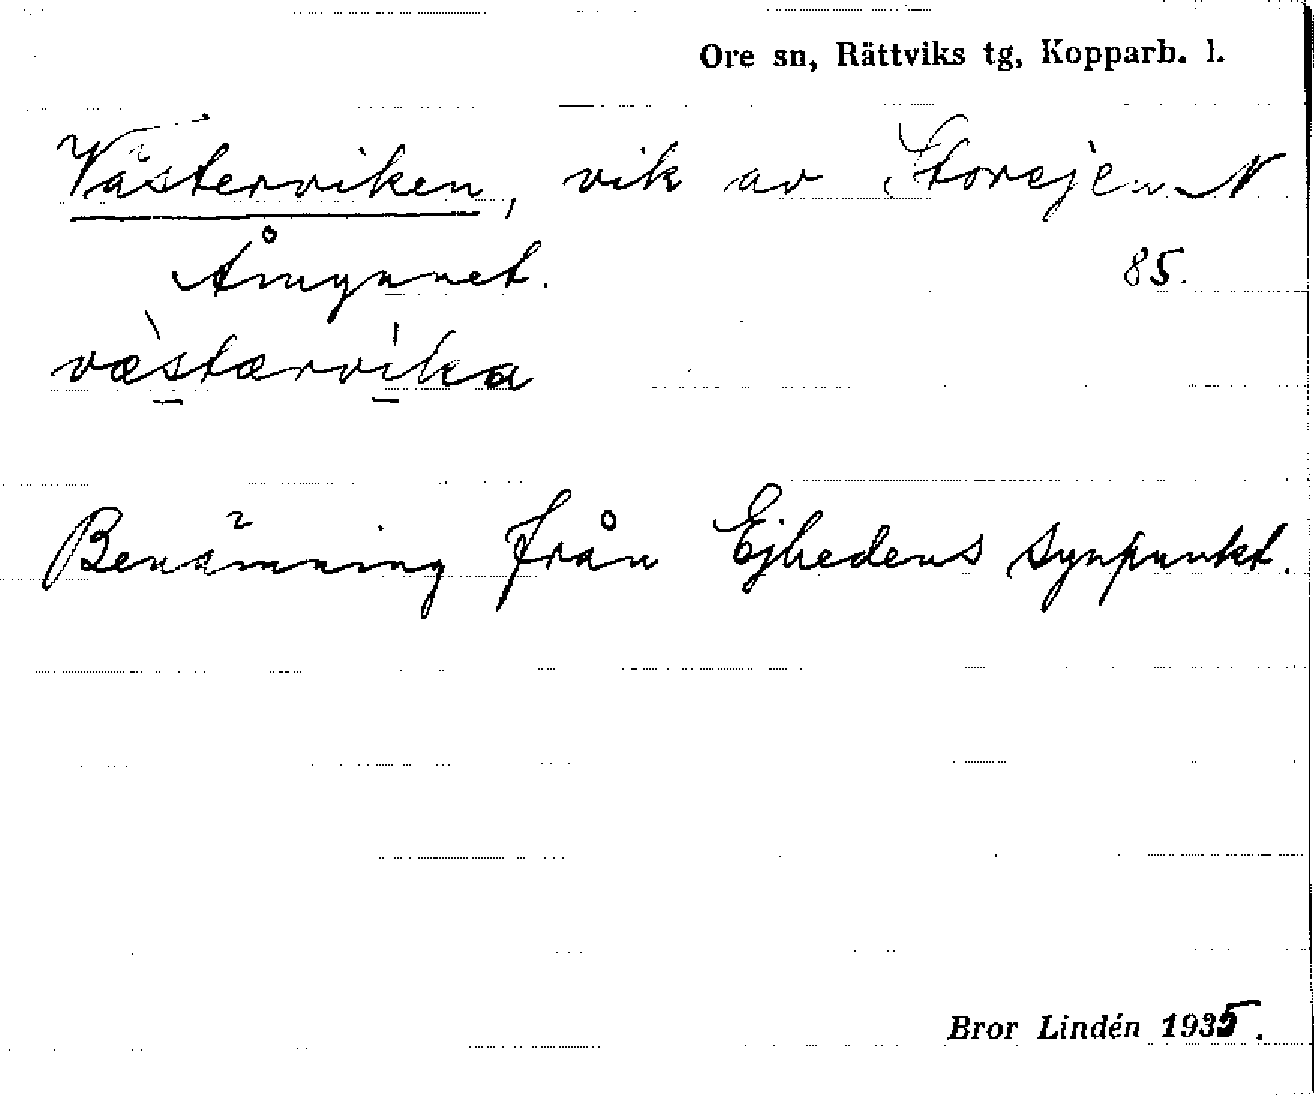 Ore sn, Rättviks tg, Kopparb. l.
Västerviken, vik av Storsjen N
Åmynnet. 85.
væ̀stærvika
Benämning från Ejhedens synpunkt.
Bror Lindén 1935.